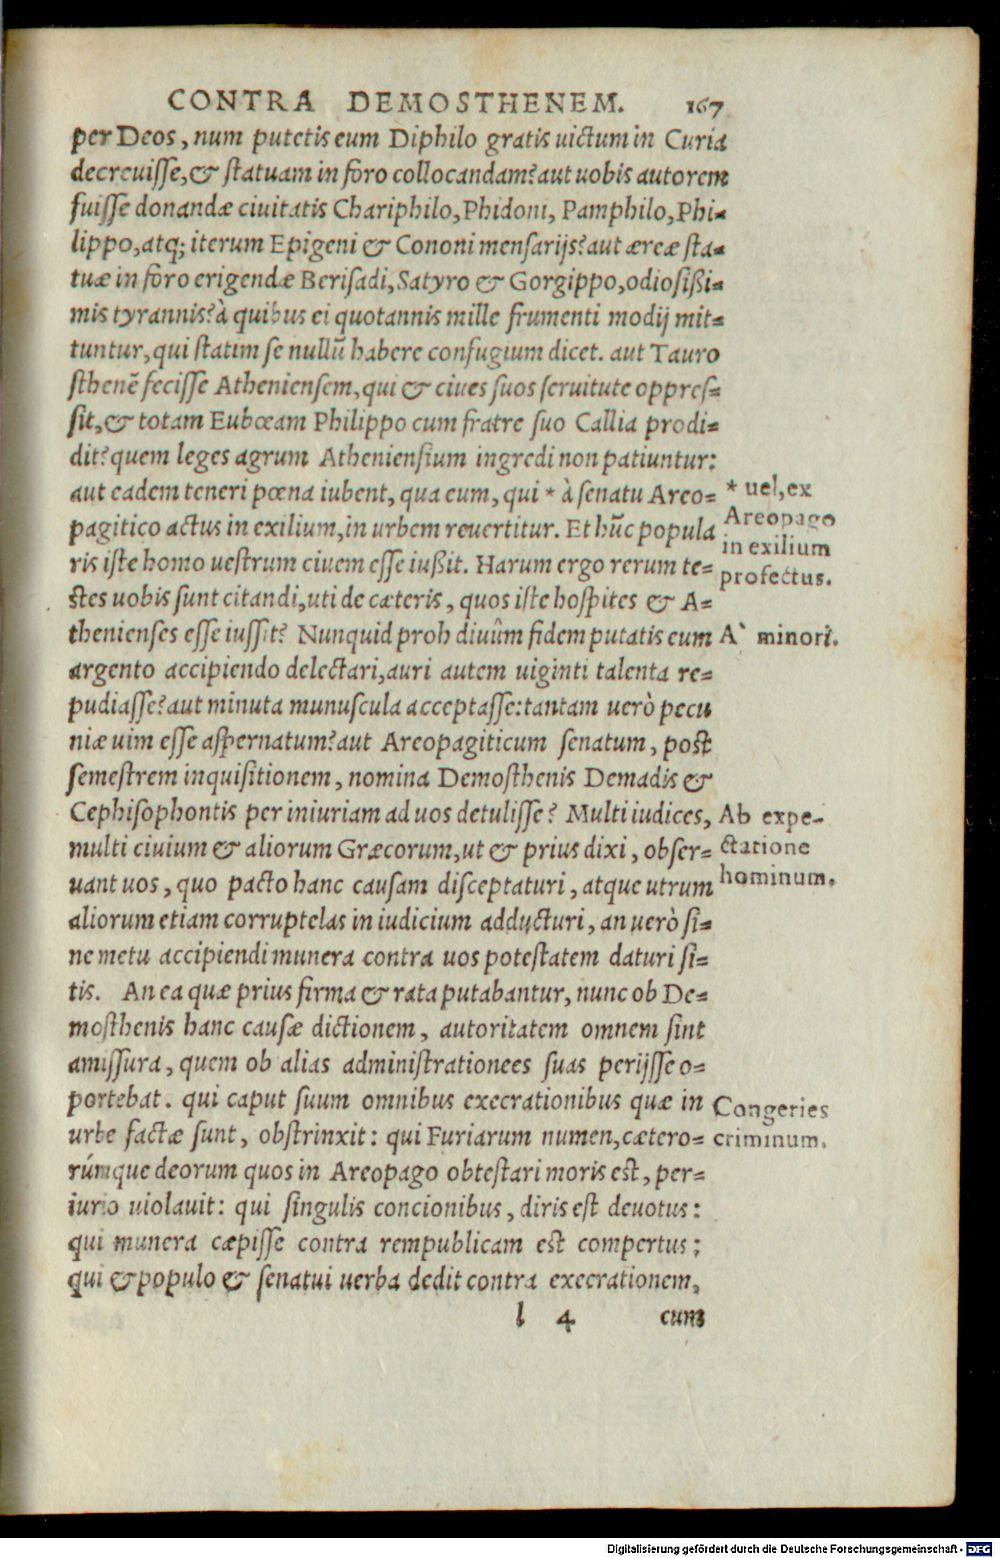 CONTRA DEMOSTHENEM. 167
per Deos, num putetis eum Diphilo gratis uictum in Curia
decreuisse, & statuam in foro collocandam? aut uobis autorem
fuisse donandæ ciuitatis Chariphilo, Phidoni, Pamphilo, Phi-
lippo, atq; iterum Epigeni & Cononi mensarijs? aut æreæ sta-
tuæ in foro erigendæ Berisadi, Satyro & Gorgippo, odiosißi-
mis tyrannis? à quibus ei quotannis mille frumenti modij mit-
tuntur, qui statim se nullũ habere confugium dicet. aut Tauro
sthenẽ fecisse Atheniensem, qui & ciues suos seruitute oppres-
sit, & totam Eubœam Philippo cum fratre suo Callia prodi-
dit? quem leges agrum Atheniensium ingredi non patiuntur:
aut eadem teneri pœna iubent, qua eum, qui * à senatu Areo-
* uel, ex
pagitico actus in exilium, in urbem reuertitur. Et hũc popula
Areopago
in exilium
ris iste homo uestrum ciuem esse iußit. Harum ergo rerum te-
profectus.
stes uobis sunt citandi, uti de cæteris, quos iste hospites & A-
thenienses esse iussit? Nunquid proh diuûm fidem putatis eum
A` minori.
argento accipiendo delectari, auri autem uiginti talenta re-
pudiasse? aut minuta munuscula acceptasse: tantam uerò pecu
niæ uim esse aspernatum? aut Areopagiticum senatum, post
semestrem inquisitionem, nomina Demosthenis Demadis &
Cephisophontis per iniuriam ad uos detulisse? Multi iudices,
Ab expe-
multi ciuium & aliorum Græcorum, ut & prius dixi, obser-
ctatione
uant uos, quo pacto hanc causam disceptaturi, atque utrum
hominum.
aliorum etiam corruptelas in iudicium adducturi, an uerò si-
ne metu accipiendi munera contra uos potestatem daturi si-
tis. An ea quæ prius firma & rata putabantur, nunc ob De-
mosthenis hanc causæ dictionem, autoritatem omnem sint
amissura, quem ob alias administrationees suas perijsse o-
portebat. qui caput suum omnibus execrationibus quæ in
Congeries
urbe factæ sunt, obstrinxit: qui Furiarum numen, cætero-
criminum.
rúmque deorum quos in Areopago obtestari moris est, per-
iurio uiolauit: qui singulis concionibus, diris est deuotus:
qui munera cæpisse contra rempublicam est compertus;
qui & populo & senatui uerba dedit contra execrationem,
l 4 cum
Digitalisierung gefördert durch die Deutsche Forschungsgemeinschaft - DFG